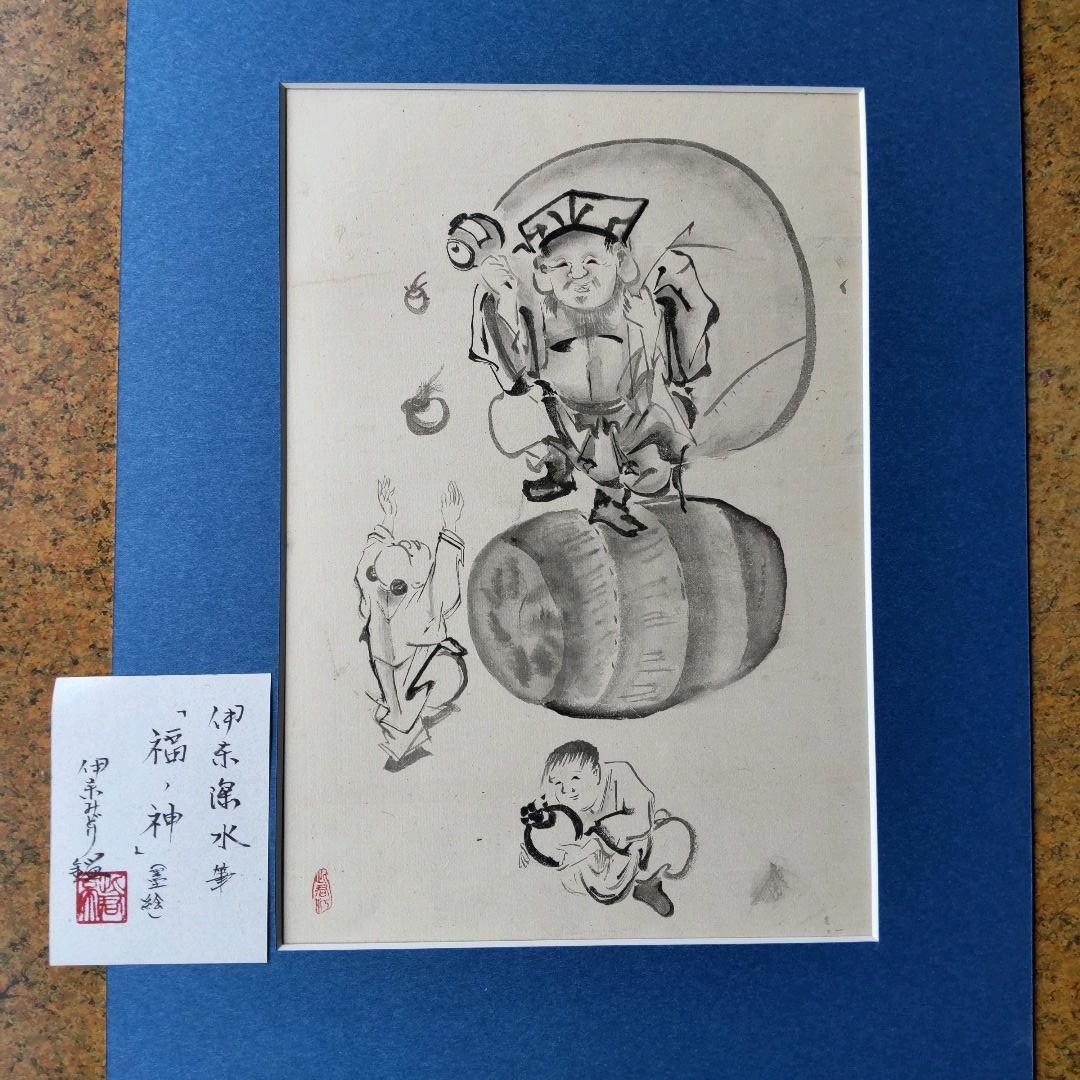 伊東深水筆
「福ノ神」(墨絵)
伊東みどり鑑